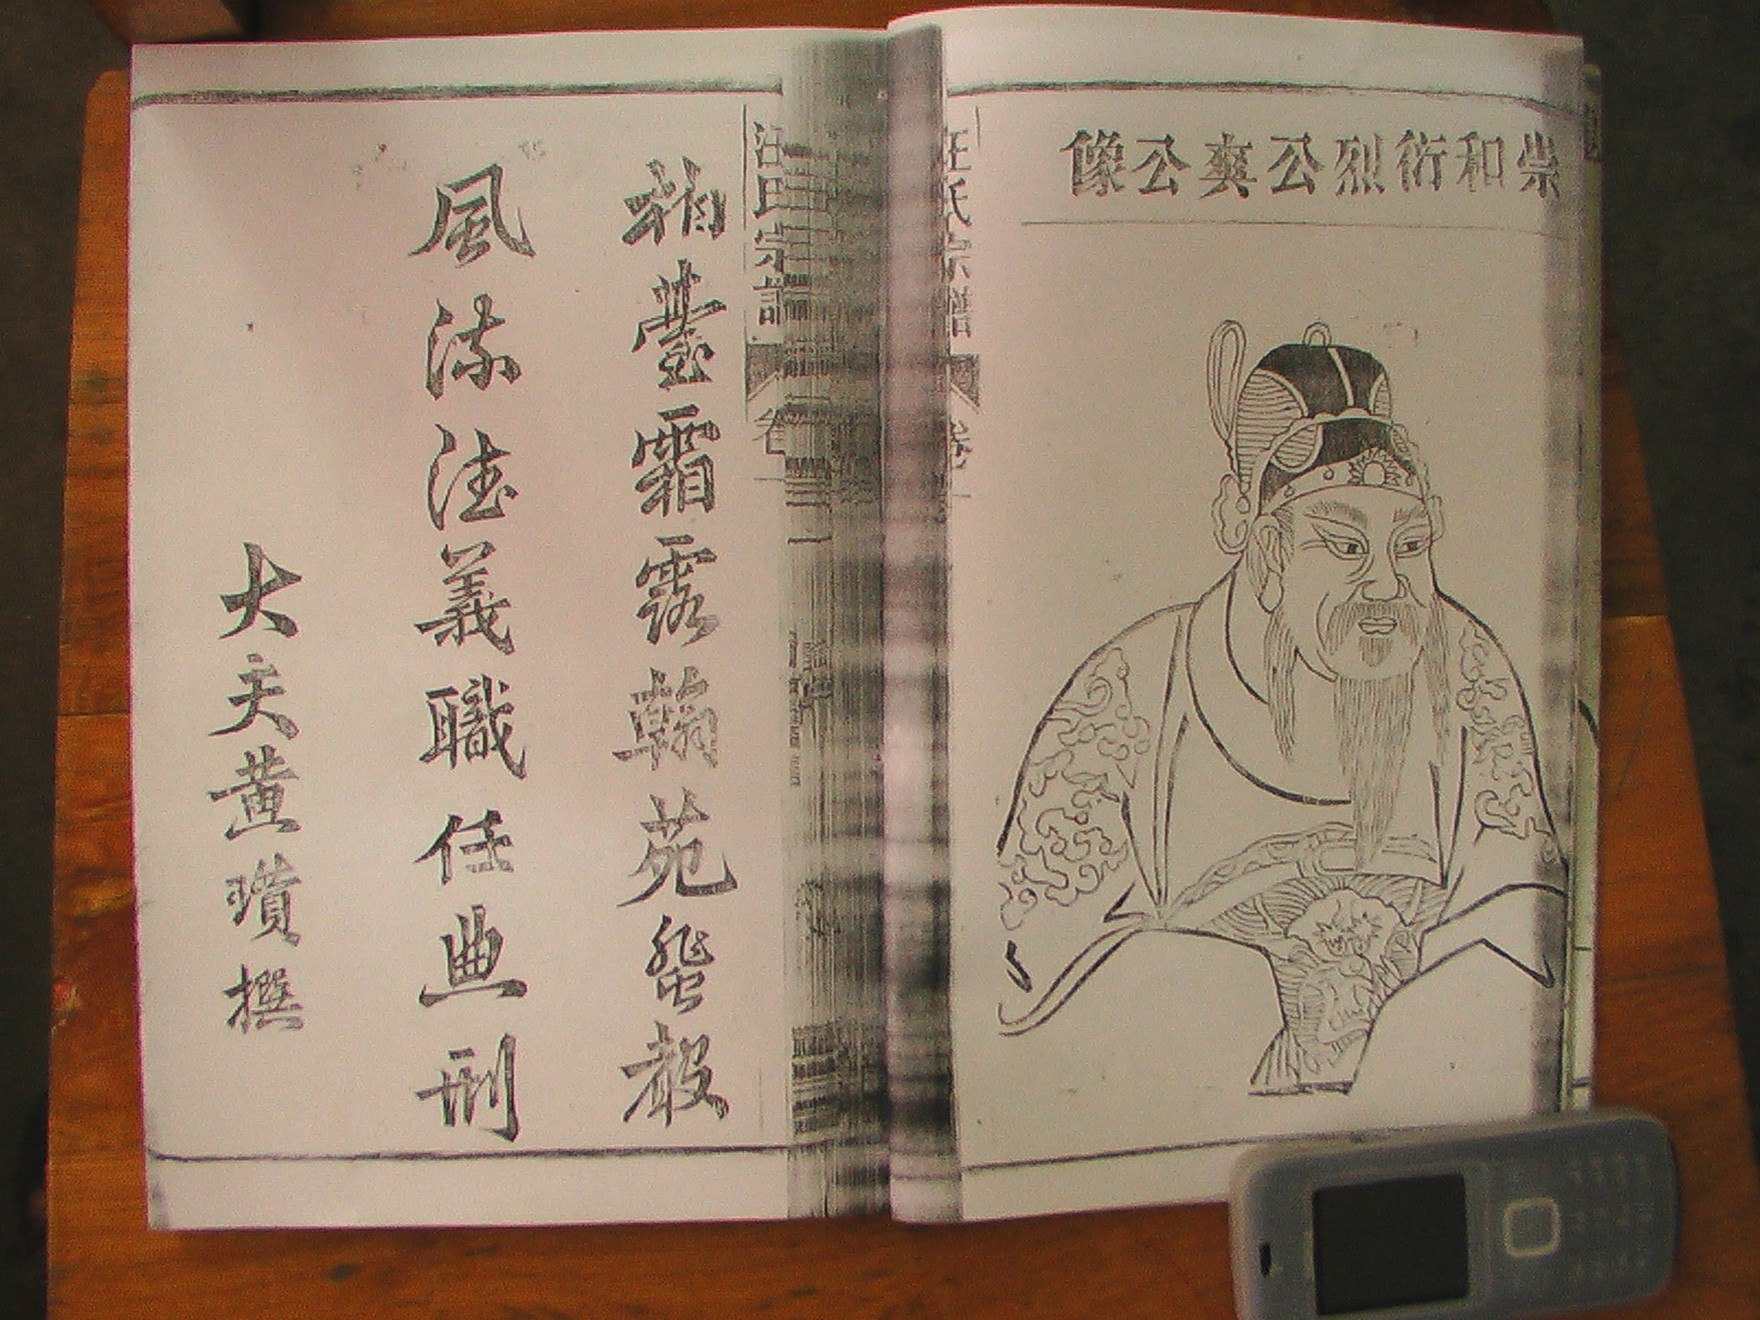 崇和衍烈公爽公像
汪氏宗譜
卷一
汪氏宗譜
卷一
柏臺霜露翰苑蜚聲
風流德義職任典刑
大夫黃瓚撰